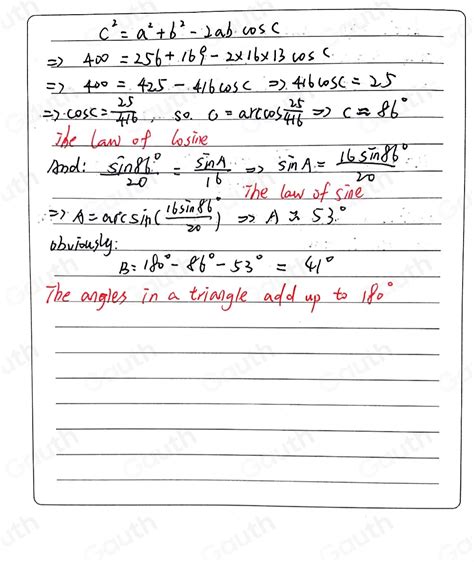 c² = a² + b² - 2ab·cosC
=> 400 = 256 + 169 - 2×16×13 cosC
=> 400 = 425 - 416cosC => 416cosC = 25
=> cosC = 25/416, so C = arccos 25/416 => C ≈ 86°
The law of Cosine
And: sin86°/20 = sinA/16 => sinA = 16sin86°/20
The law of sine
=> A = arcsin(16sin86°/20) => A ≈ 53°
obviously:
B = 180° - 86° - 53° = 41°
The angles in a triangle add up to 180°
Gauth